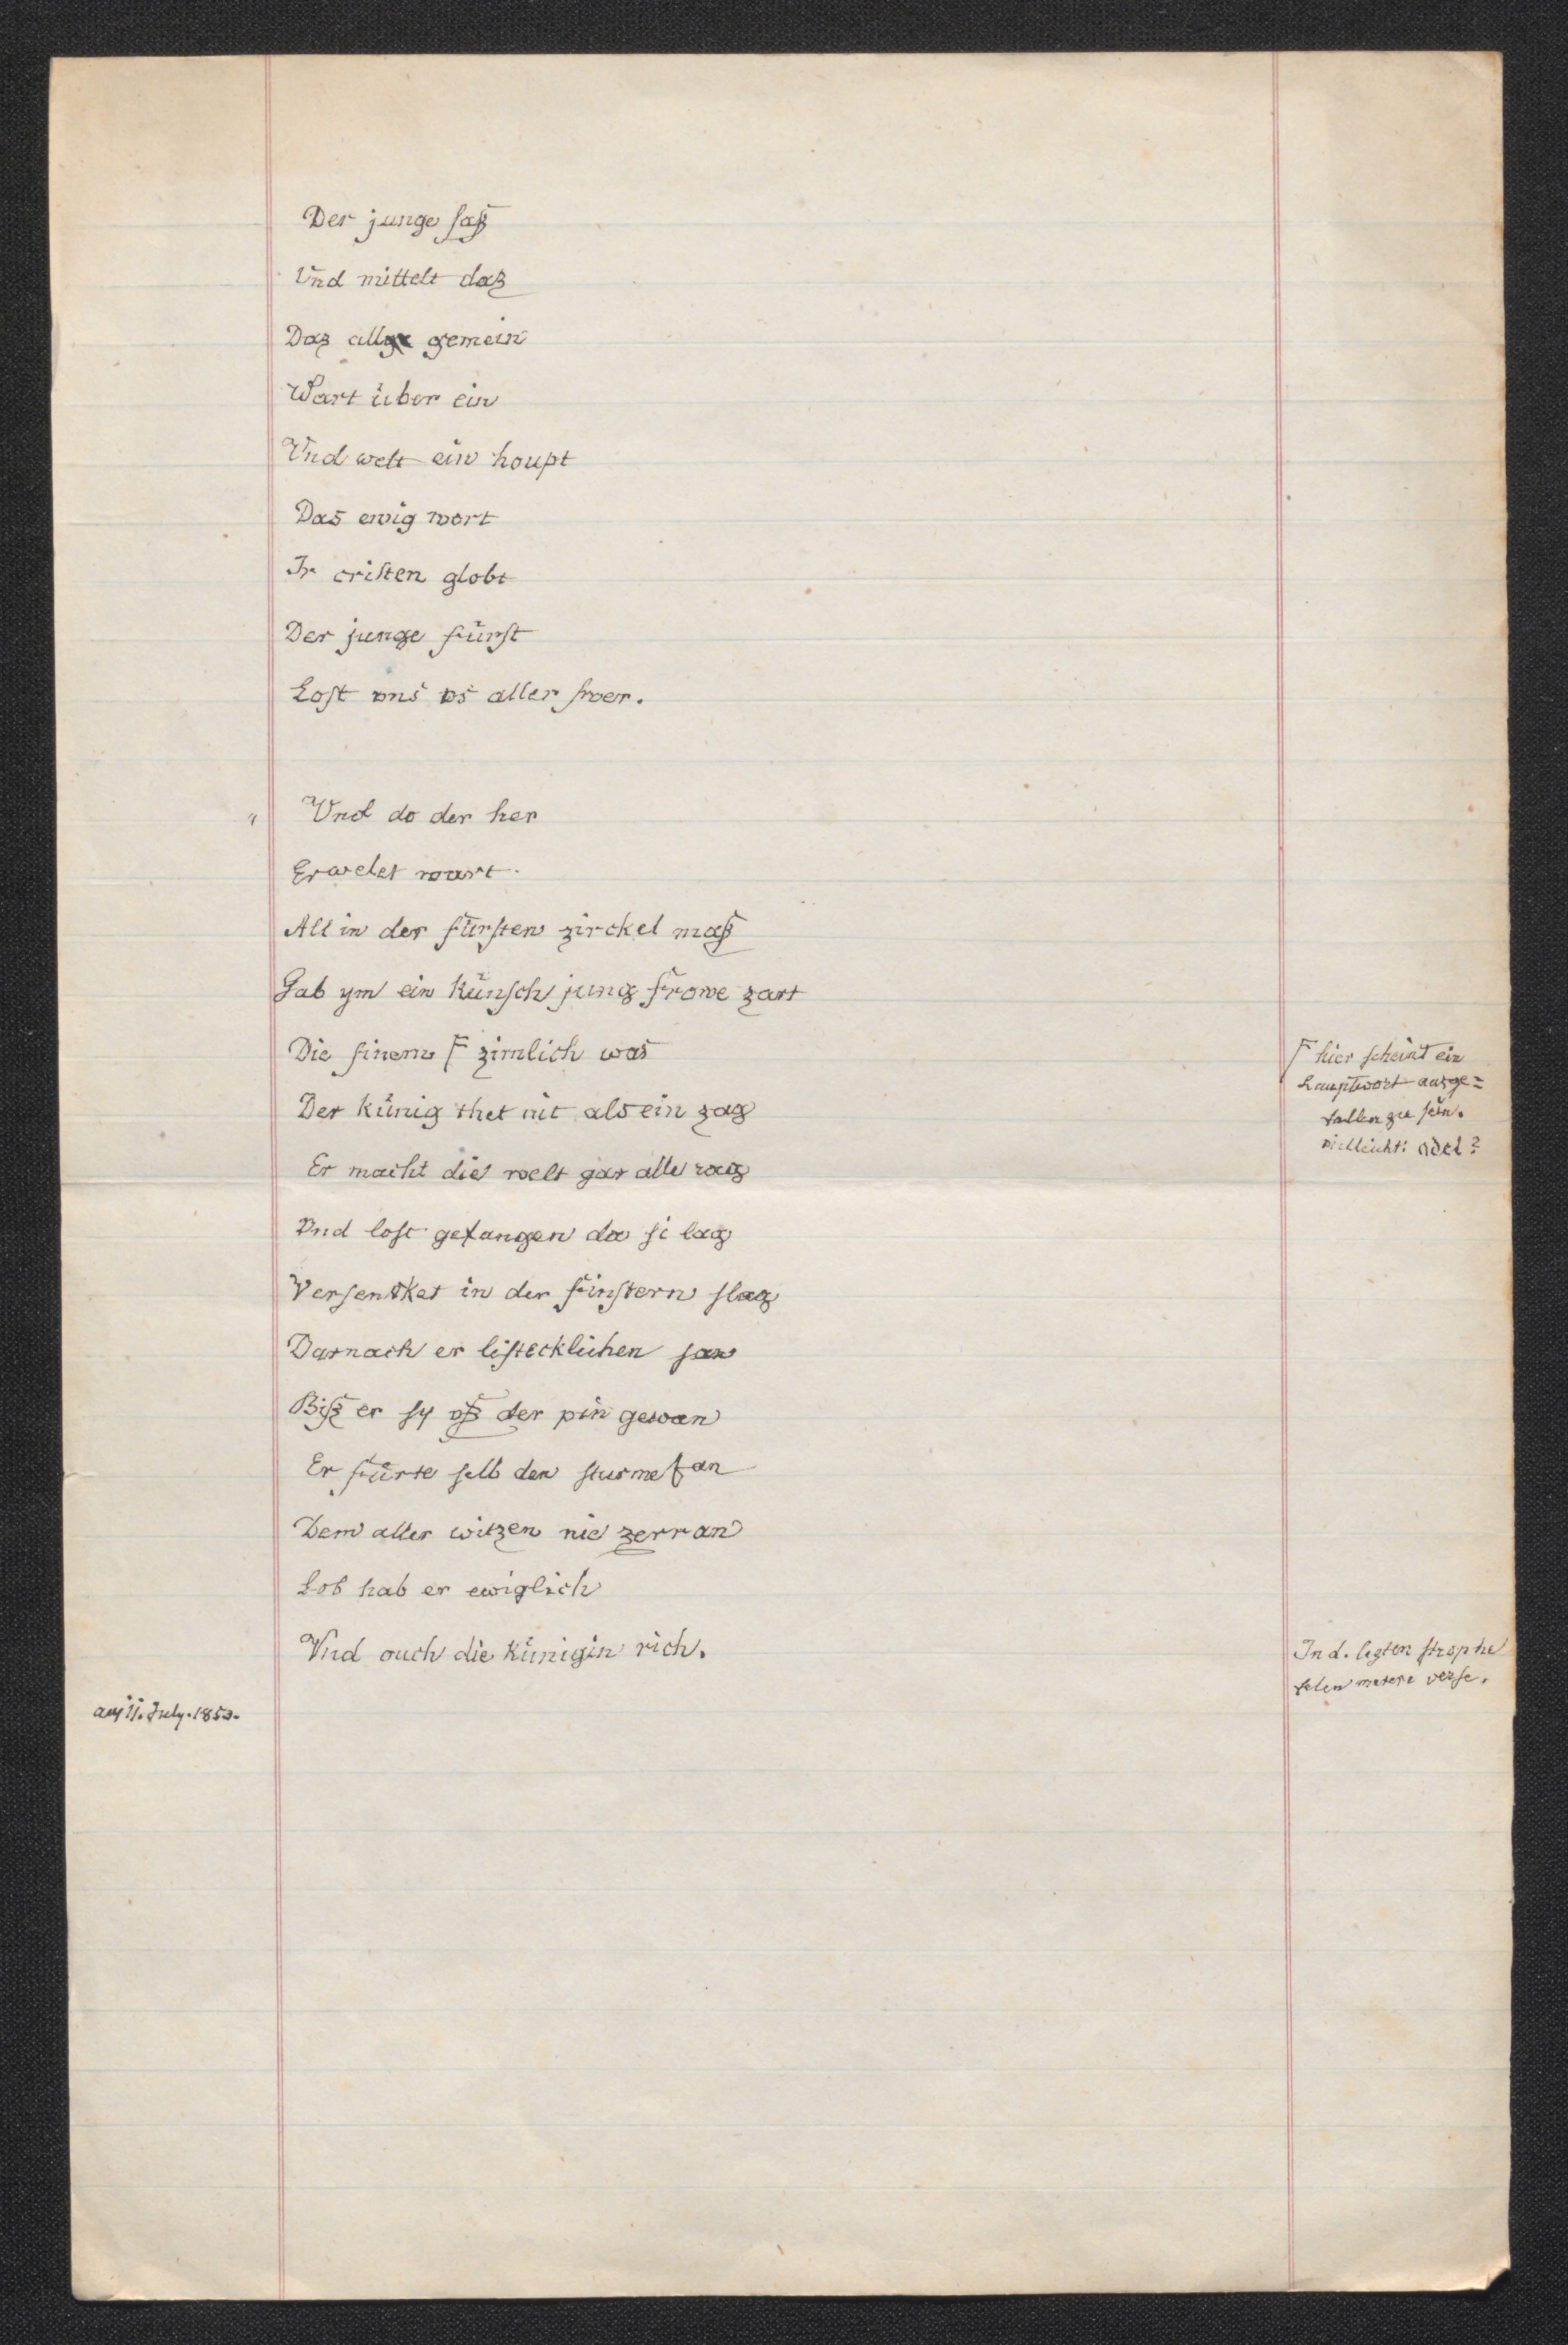 Der junge saß
Und mittelt daz
Daz allge gemein
Wart über ein
Vnd welt ein houpt
Das ewig wort
Ir cristen globt
Der junge fürst
Lost vns vs aller swer.
" Vnd do der her
Erwelet wart.
All in der fürsten zirckel maß
Gab ym ein künsch jung frowe zart
Die sinem F zimlich was
Der künig thet nit als ein zag
Er macht die welt gar alle wag
Vnd lost gefangen da si lag
Versenket in der finstern slag
Darnach er listecklichen san
Biß er sy vß der pin gewan
Er fürte selb den sturme fan
Dem aller witzen nie zerran
Lob hab er ewiglich
Vnd ouch die künigin rich.
F hier scheint ein
Hauptwort ausge=
fallen zu sein.
vielleicht: adel?
In d. lezten strophe
felen merere verse.
am 11. July. 1853.